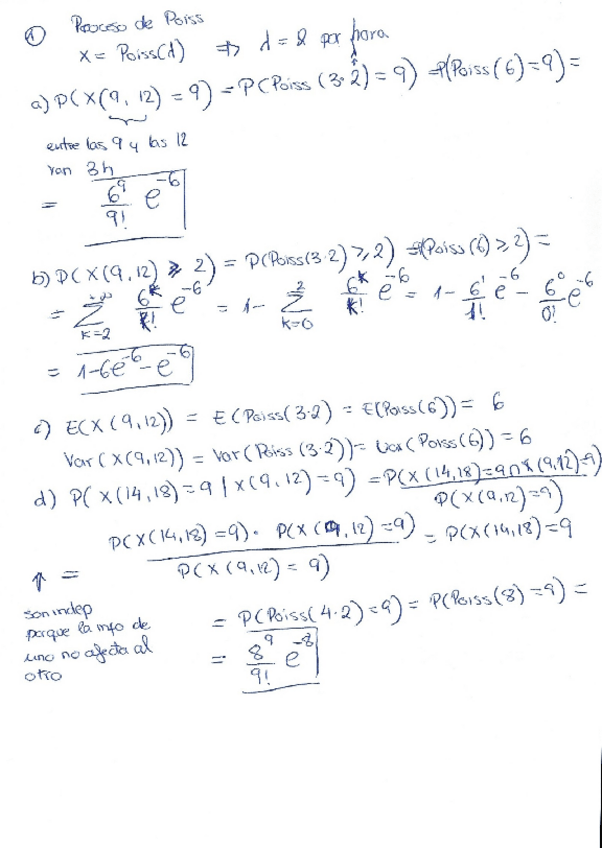 ① Proceso de Poiss
X = Poiss(λ) ⇒ λ = 2 por hora
a) P(X(9, 12) = 9) = P(Poiss(3·2) = 9) = P(Poiss(6) = 9) =
entre las 9 y las 12
van 3h
= 6^9/9! e^-6
b) P(X(9,12) ≥ 2) = P(Poiss(3·2) ≥ 2) = P(Poiss(6) ≥ 2) =
= Σ_{k=2}^{+∞} 6^k/k! e^-6 = 1 - Σ_{k=0}^{2} 6^k/k! e^-6 = 1 - 6^1/1! e^-6 - 6^0/0! e^-6
= 1-6e^-6 - e^-6
c) E(X(9,12)) = E(Poiss(3·2) = E(Poiss(6)) = 6
Var(X(9,12)) = Var(Poiss(3·2)) = Var(Poiss(6)) = 6
d) P(X(14,18) = 9 | X(9,12) = 9) = P(X(14,18) = 9 ∩ X(9,12) = 9) / P(X(9,12) = 9)
↑ = P(X(14,18) = 9) · P(X(9,12) = 9) / P(X(9,12) = 9) = P(X(14,18) = 9
son indep
porque la info de
uno no afecta al
otro
= P(Poiss(4·2) = 9) = P(Poiss(8) = 9) =
= 8^9/9! e^-8